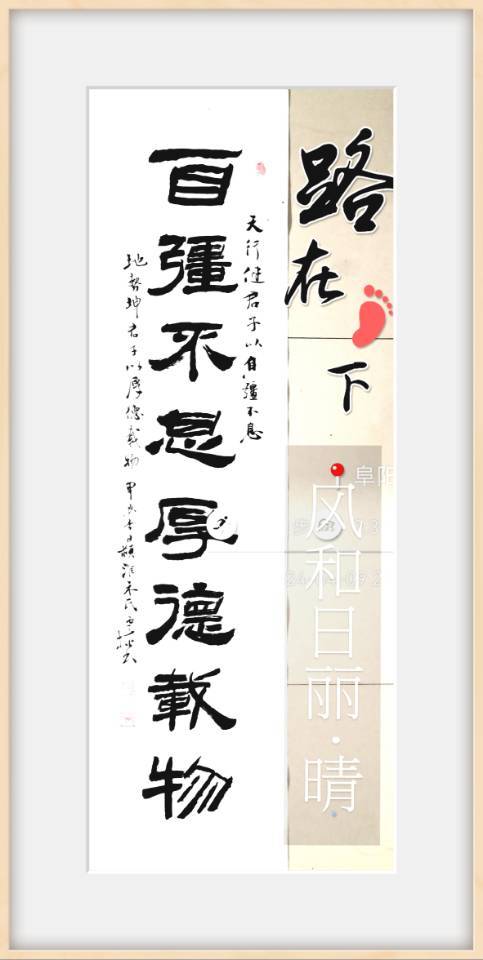 路在下
阜阳
风和日丽·晴
天行健君子以自彊不息
自彊不息厚德載物
地势坤君子以厚德载物 甲辰春日